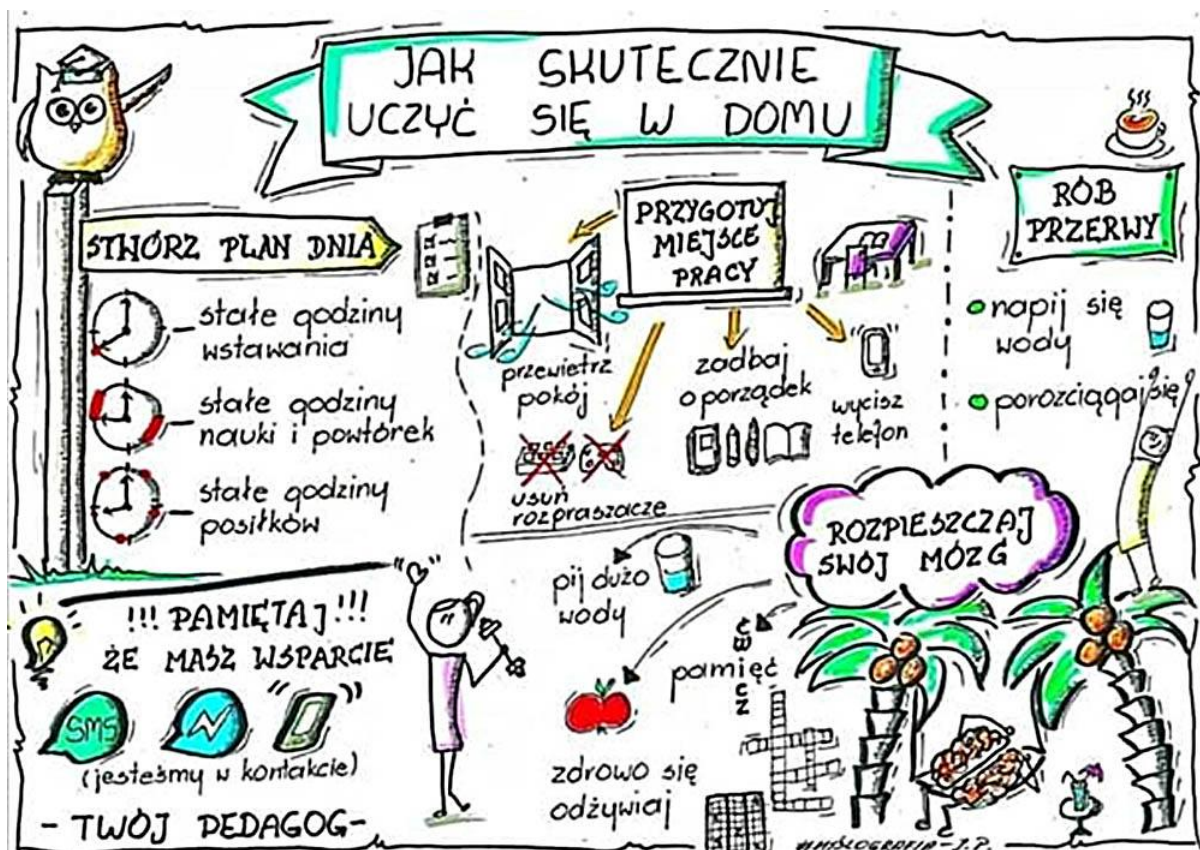 JAK SKUTECZNIE
UCZYĆ SIĘ W DOMU
STWÓRZ PLAN DNIA
stałe godziny
wstawania
stałe godziny
nauki i powtórek
stałe godziny
posiłków
PRZYGOTUJ
MIEJSCE
PRACY
przewietrz
pokój
usuń
rozpraszacze
zadbaj
o porządek
wycisz
telefon
RÓB
PRZERWY
napij się
wody
porozciągaj się
ROZPIESZCZAJ
SWÓJ MÓZG
pij dużo
wody
ćwicz
pamięć
zdrowo się
odżywiaj
!!! PAMIĘTAJ !!!
ŻE MASZ WSPARCIE
SMS
(jesteśmy w kontakcie)
- TWÓJ PEDAGOG -
#MYŚLOGRAFIA - J.P.